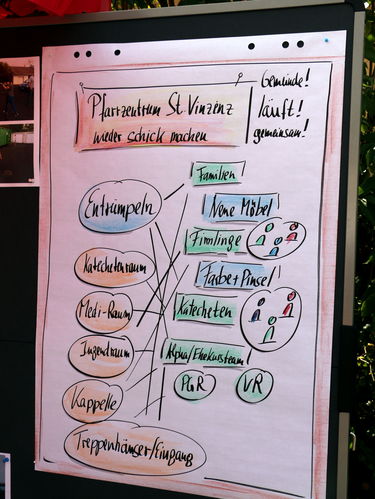 Pfarrzentrum St. Vinzenz
wieder schick machen
Gemeinde!
läuft!
gemeinsam!
Entrümpeln
Katechetenraum
Medi-Raum
Jugendraum
Kappelle
Treppenhäuser/Eingang
Familien
Neue Möbel
Firmlinge
Farbe + Pinsel
Katecheten
Alpha/Ehekursteam
PGR
VR